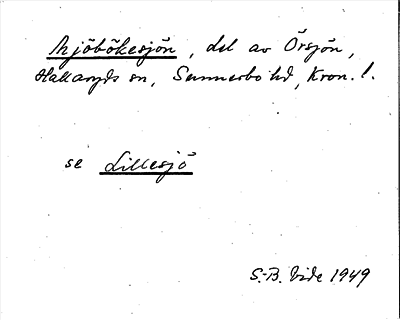 Mjöbökesjön, del av Örsjön,
Hallaryds sn, Sunnerbo hd, Kron. l.
se Lillesjö
S.-B. Vide 1949